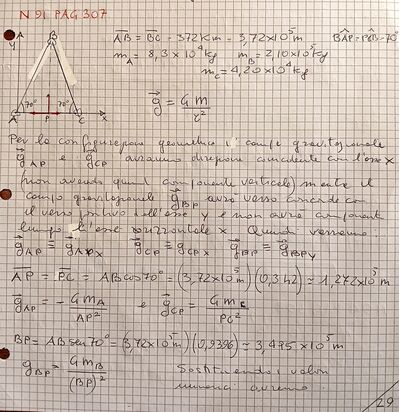 N 91 PAG 307
y B
AB = BC = 372 Km = 3,72x10⁵m BÂP = PĈB = 70°
m_A = 8,3 x 10⁴ kg m_B = 2,10 x 10⁵ kg
m_C = 4,20 x 10⁴ kg
A 70° P 70° C x
g = G m / r²
Per la configurazione geometrica i campi gravitazionali
g_AP e g_CP avranno direzione coincidente con l'asse x
(non avendo quindi componente verticale) mentre il
campo gravitazionale g_BP avrà verso coincidente con
il verso positivo dell'asse y e non avrà componente
lungo l'asse orizzontale x. Quindi
g_AP ≡ g_APx g_CP ≡ g_CPx g_BP ≡ g_BPy
AP = PC = AB cos70° = (3,72x10⁵m)(0,342) ≃ 1,272x10⁵m
g_AP = - G m_A / AP² e g_CP = G m_C / PC²
BP = AB sen70° = (3,72x10⁵m)(0,9396) ≃ 3,495x10⁵m
g_BP = G m_B / (BP)² Sostituendo i valori
numerici avremo
29